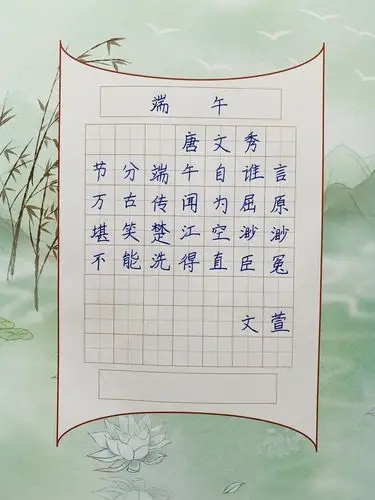 端午
唐文秀
节分端午自谁言
万古传闻为屈原
堪笑楚江空渺渺
不能洗得直臣冤
文萱